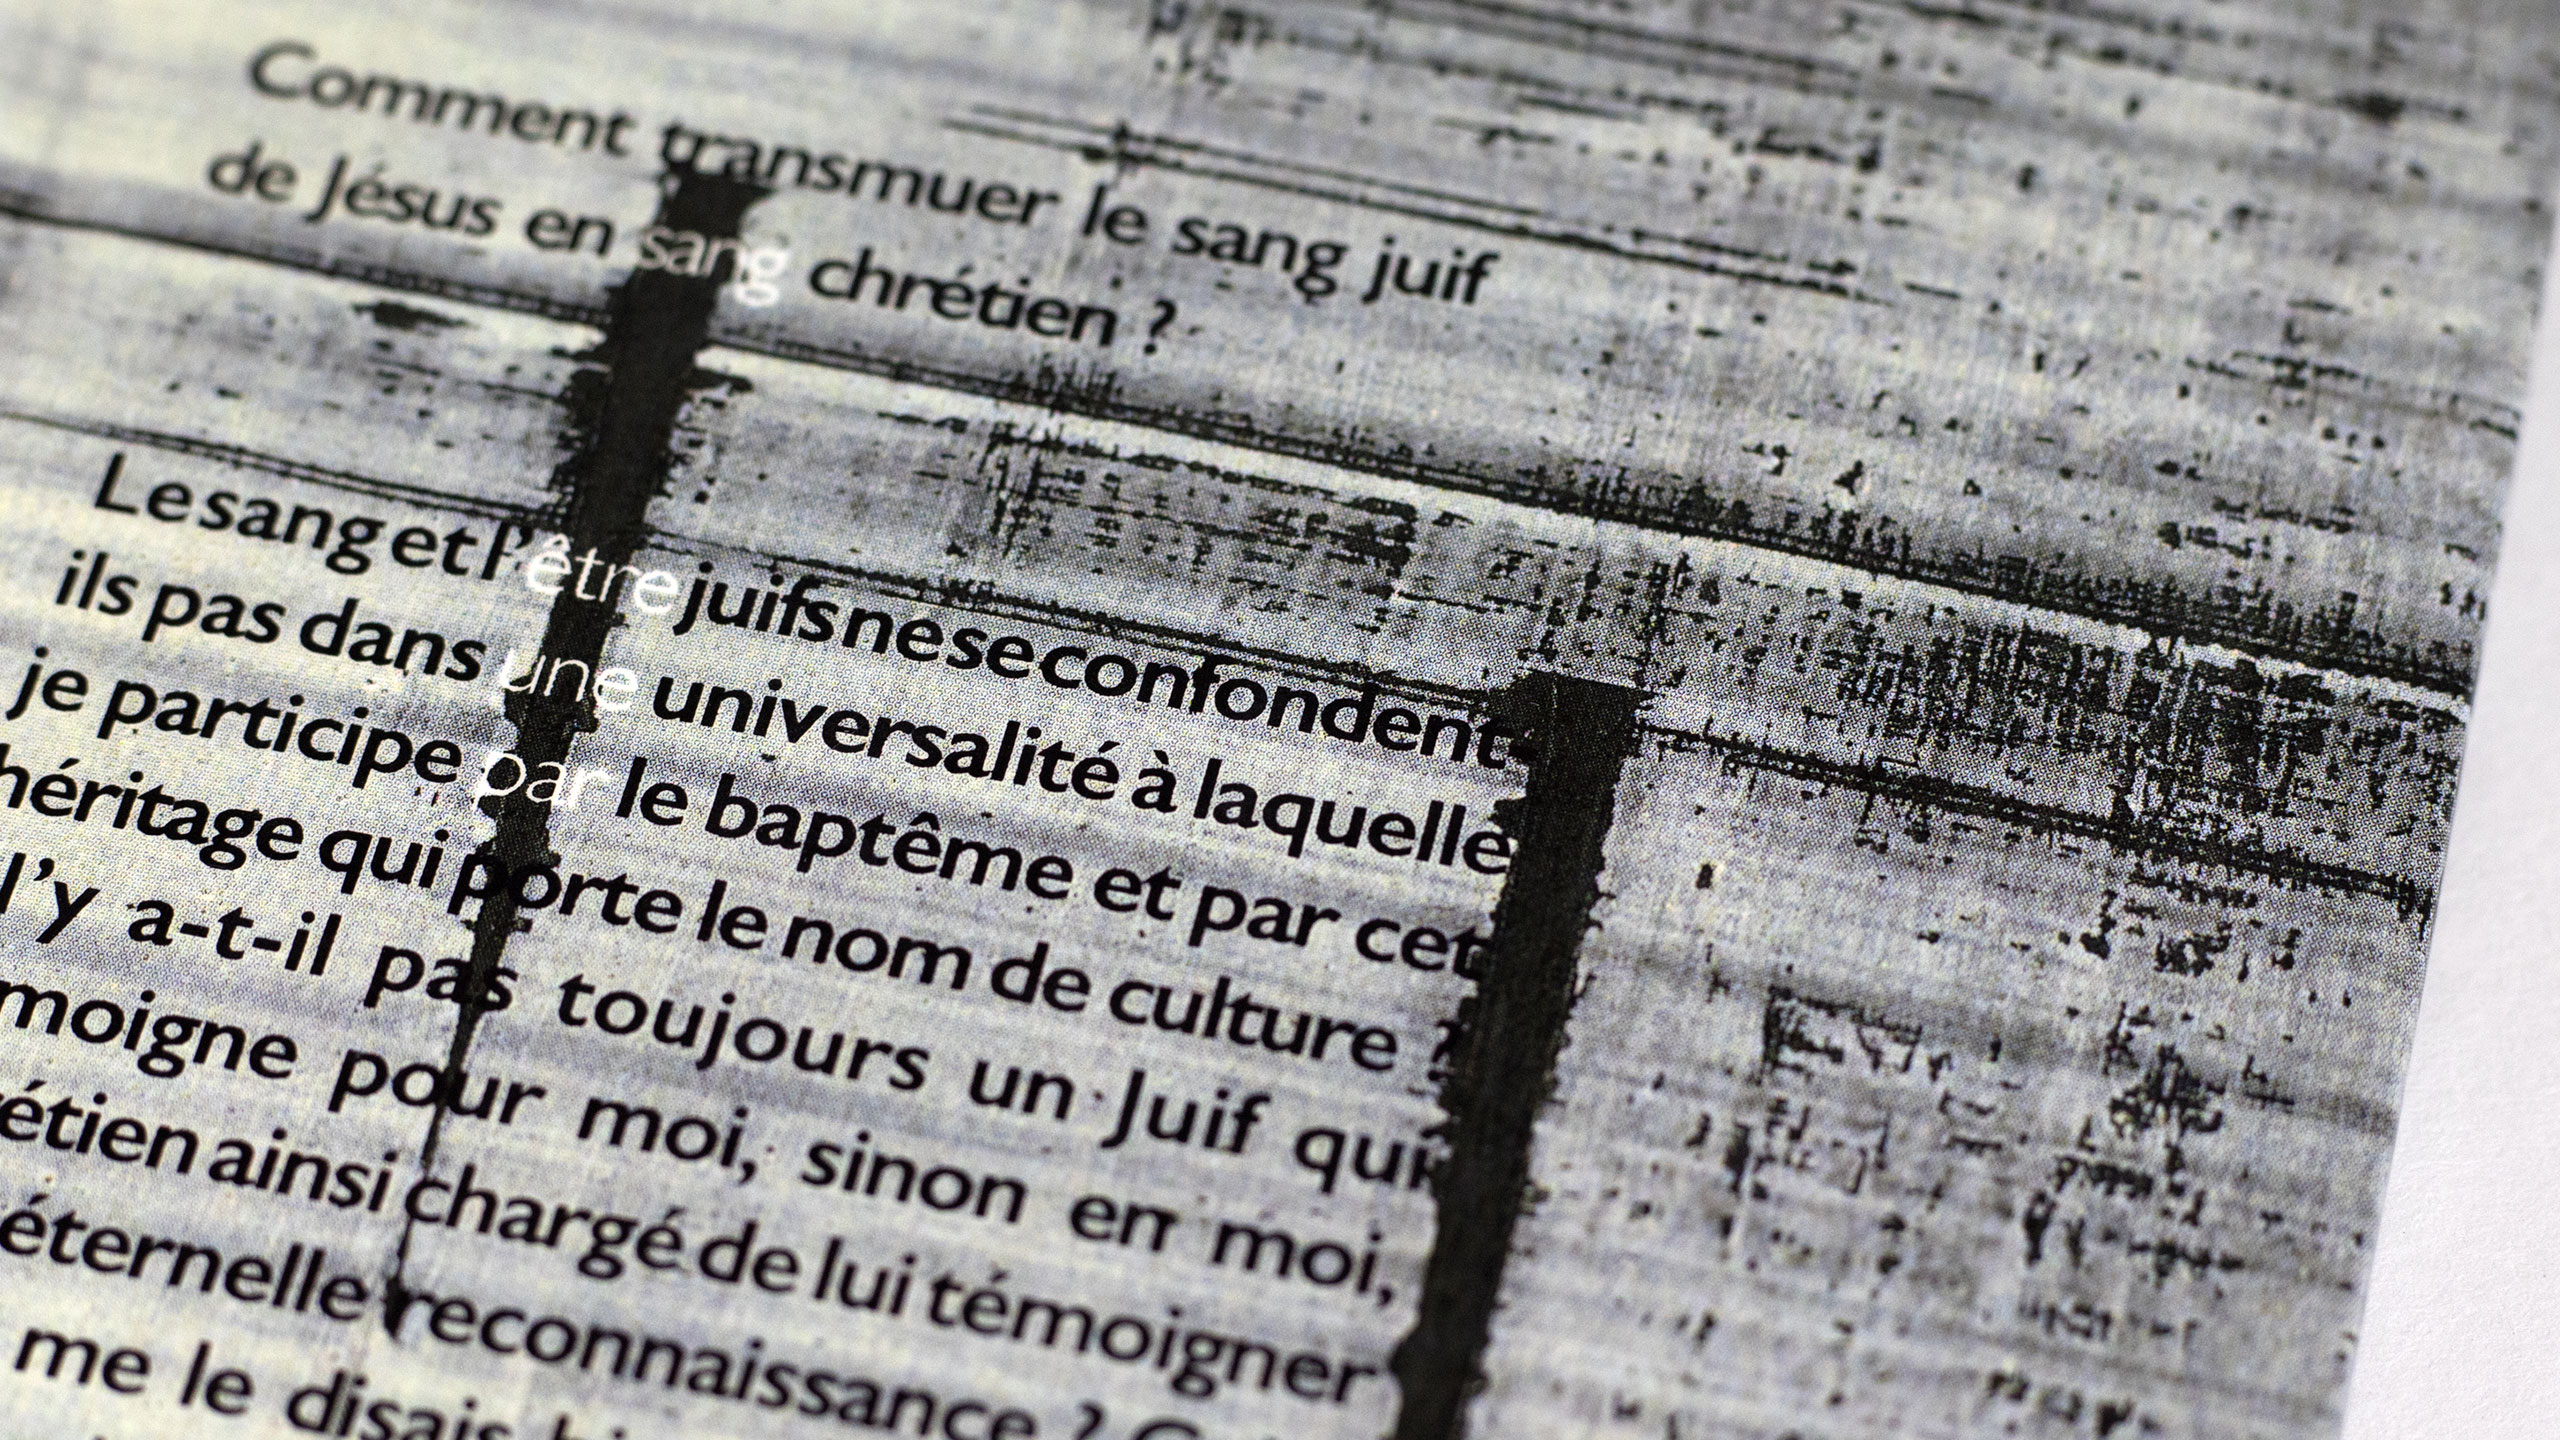 Comment transmuer le sang juif
de Jésus en sang chrétien ?
Le sang et l'être juifs ne se confondent-
ils pas dans une universalité à laquelle
je participe par le baptême et par cet
héritage qui porte le nom de culture ?
l'y a-t-il pas toujours un Juif qui
moigne pour moi, sinon en moi,
étien ainsi chargé de lui témoigner
éternelle reconnaissance ?
me le disais